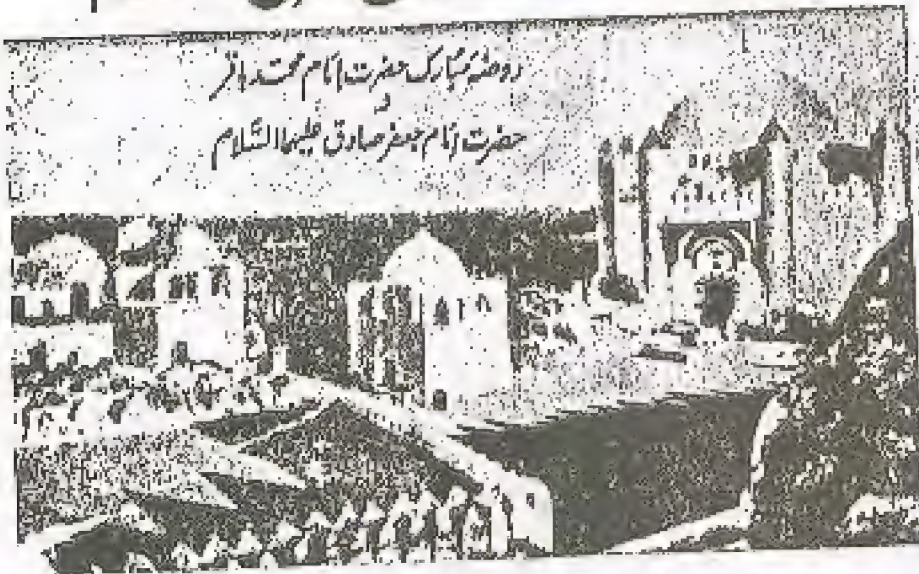 روضہ مبارک حضرت امام محمد باقر
و
حضرت امام جعفر صادق علیہما السلام